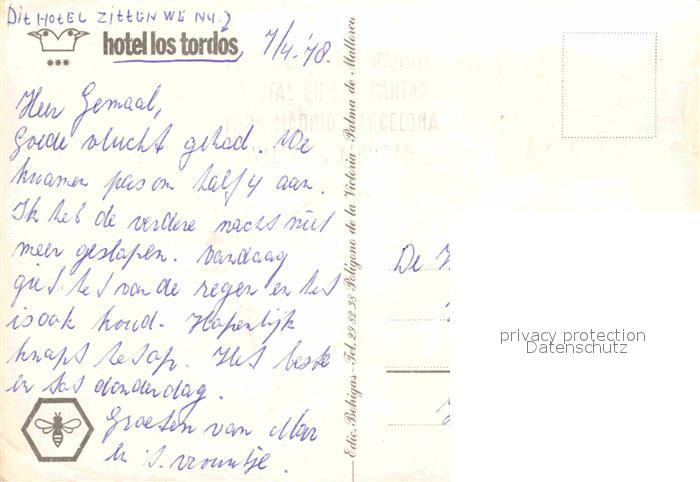 Dit HOTEL ZITTEN WE NU.
hotel los tordos
7/4.'78.
Heer Gemaal,
Goede vlucht gehad. We
kwamen pas om half 4 aan.
Ik heb de verdere nacht niet
meer geslapen. Vandaag
giet het van de regen en het
is ook koud. Hopenlijk
knapt het op. Het beste
en tot donderdag.
Groeten van Mar
en 't vrouwtje.
Edic. Bohigas - Tel. 29 82 98 Polígono de la Victoria - Palma de Mallorca
MADRID BARCELONA
De
privacy protection
Datenschutz